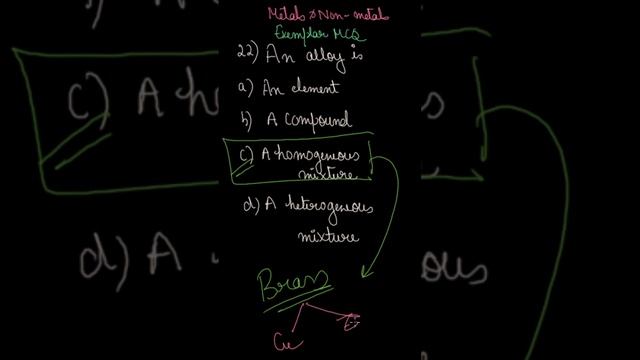 Metals & Non-metals
Exemplar MCQ
22) An alloy is
a) An element
b) A Compound
c) A homogenous
mixture
d) A heterogenous
mixture
Brass
Cu